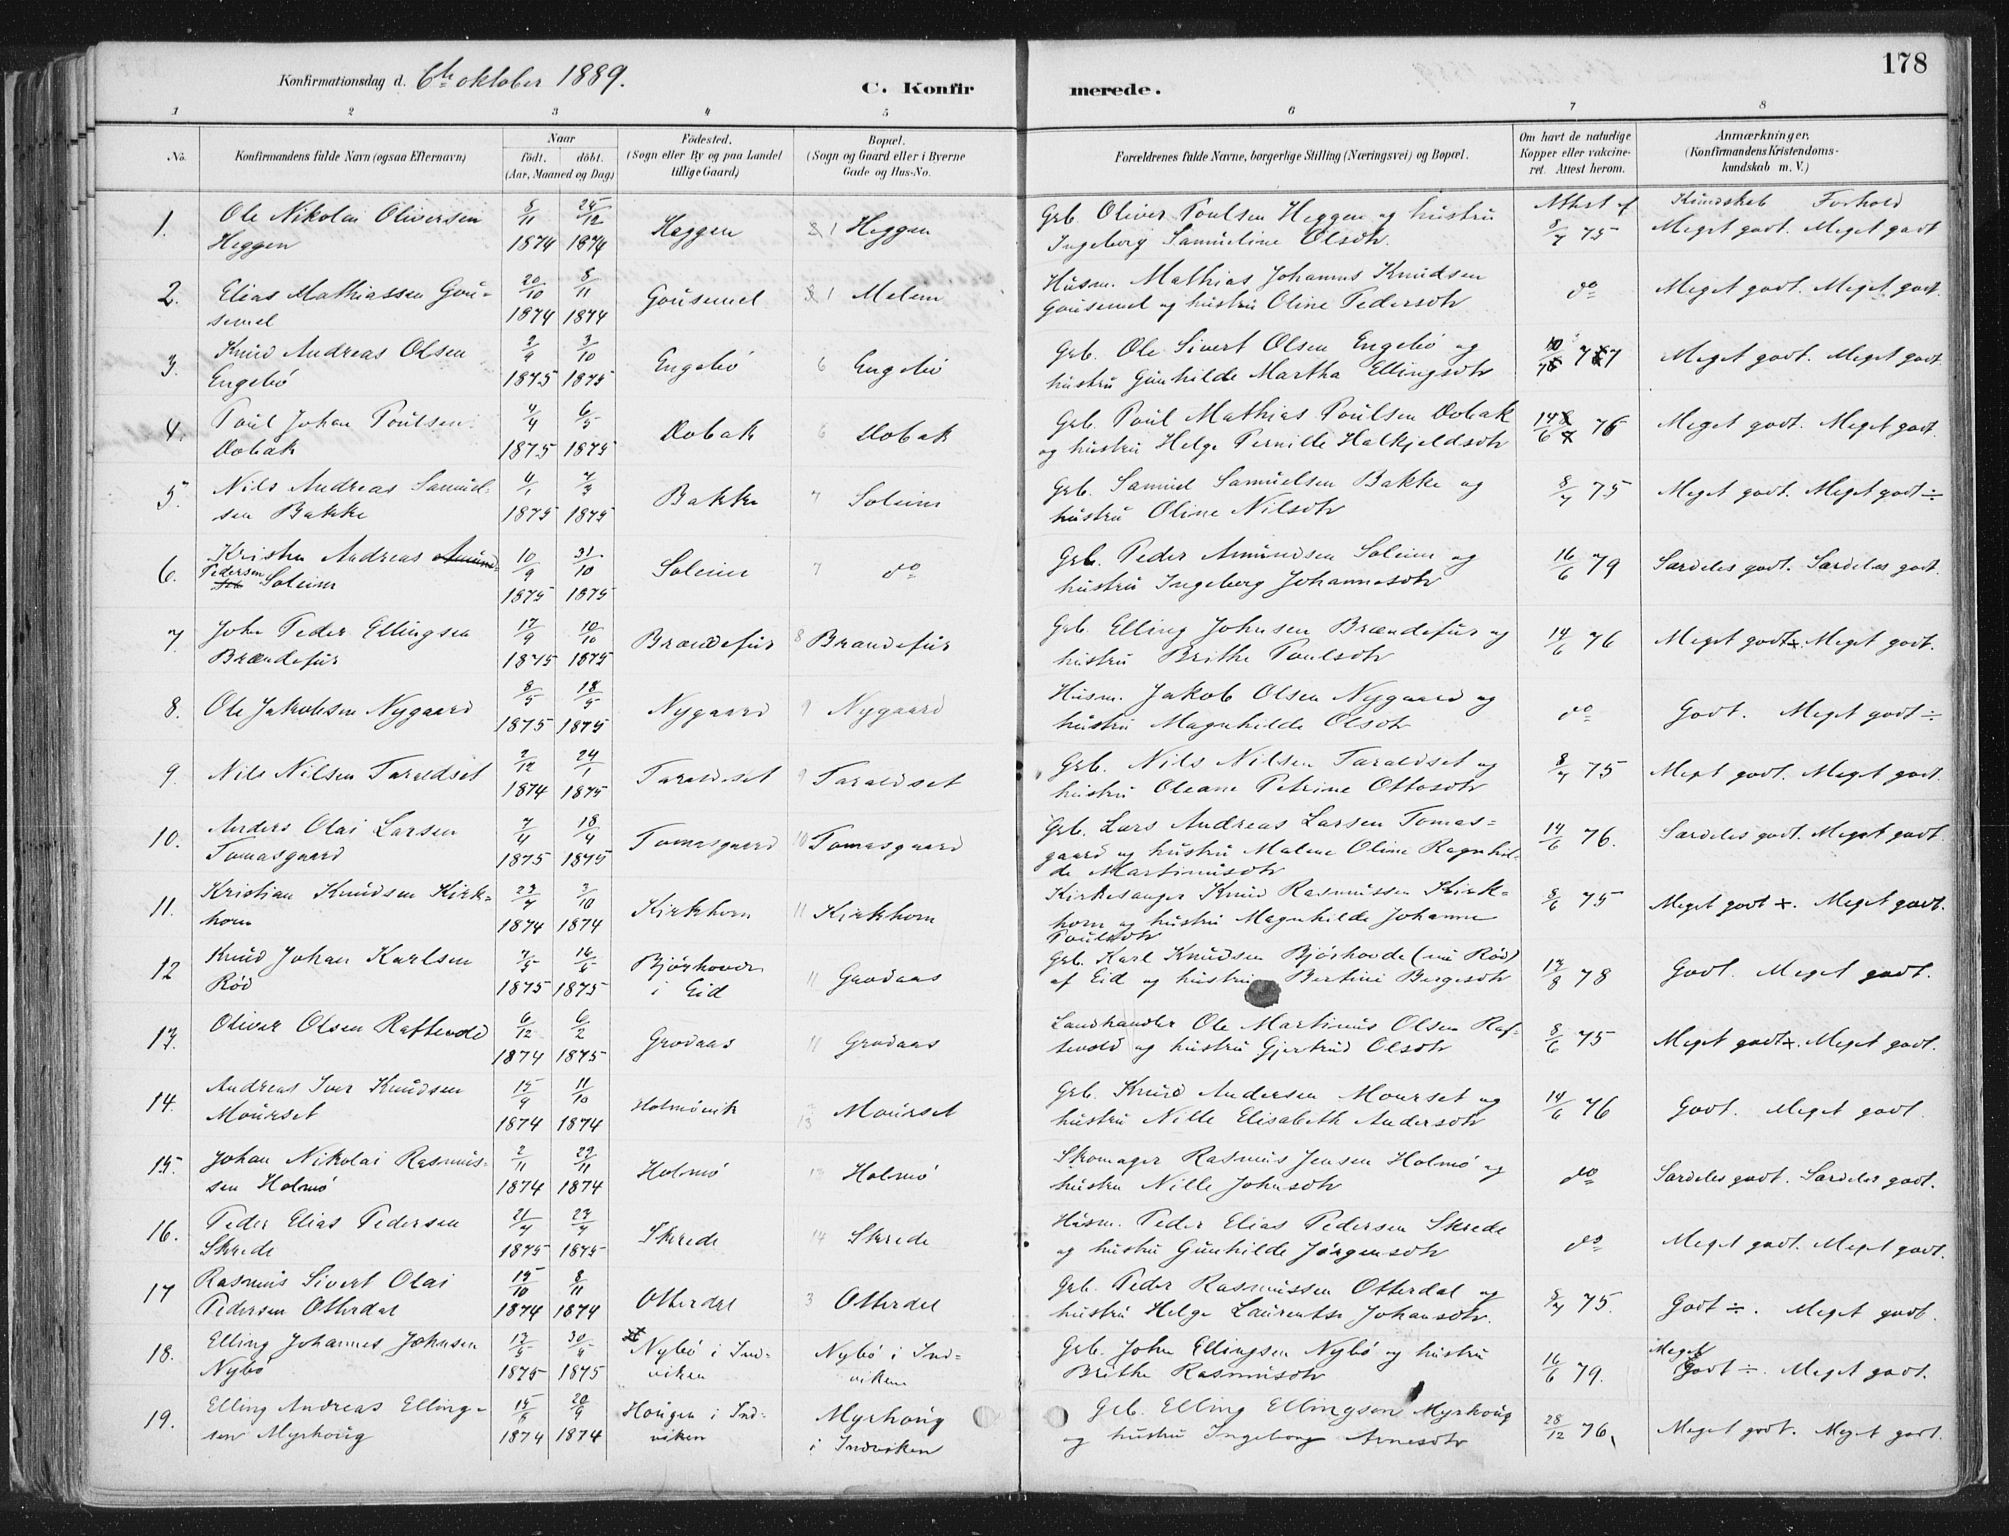 178
Konfirmationsdag d. 6te oktober 1889.
C. Konfir merede.
1 2 3 4 5 6 7 8
No.
Konfirmandens fulde Navn (ogsaa Efternavn)
Naar
födt. döbt.
(Aar, Maaned og Dag)
Födested.
(Sogn eller By og paa Landet
tillige Gaard)
Bopæl.
(Sogn og Gaard eller i Byerne
Gade og Hus-No.
Forældrenes fulde Navne, borgerlige Stilling (Næringsvei) og Bopæl.
Om havt de naturlige
Kopper eller vakcine-
ret. Attest herom.
Anmærkninger.
(Konfirmandens Kristendoms-
kundskab m. V.)
Attest af Kundskab Forhold
1. Ole Nikolai Oliversen 8/11 25/12 Heggen 1 Heggen Grb. Oliver Poulsen Heggen og hustru 8/7 75 Meget godt. Meget godt
Heggen 1874 1874 Ingeborg Samueline Olsdtr.
2. Elias Mathiassen Gou- 20/10 8/11 Gousemel 1 Melem Husm. Mathias Johannes Knudsen do Meget godt. Meget godt.
semel 1874 1874 Gousemel og hustru Oline Pedersdtr
3. Knud Andreas Olsen 2/9 3/10 Engebö 6 Engebö Grb. Ole Sivert Olsen Engebö og 77 Meget godt. Meget godt.
Engebö 1875 1875 hustru Gunhilde Martha Ellingsdtr
4. Poul Johan Poulsen 4/4 6/5 Dobak 6 Dobak Grb. Poul Mathias Poulsen Dobak 14/6 76 Meget godt. Meget godt.
Dobak 1875 1875 og hustru Helge Pernille Halkjeldsdtr
5. Nils Andreas Samuel- 4/1 7/3 Bakke 7 Soleim Grb. Samuel Samuelsen Bakke og 8/7 75 Meget godt. Meget godt ÷
sen Bakke 1875 1875 hustru Oline Nilsdtr
6. Kristen Andreas 10/9 31/10 Soleim 7 do Grb. Peder Amundsen Soleim og 16/6 79 Særdeles godt. Særdeles godt.
Pedersen Soleim 1875 1875 hustru Ingeborg Johannesdtr
7. John Peder Ellingsen 17/9 10/10 Brændefur 8 Brændefur Grb. Elling Johnsen Brændefur og 14/6 76 Meget godt +. Meget godt.
Brændefur 1875 1875 hustru Brithe Poulsdtr
8. Ole Jakobsen Nygaard 8/5 18/5 Nygaard 9 Nygaard Husm. Jakob Olsen Nygaard og do Godt. Meget godt ÷
1875 1875 hustru Magnhilde Olsdtr
9. Nils Nilsen Taraldset 2/12 24/1 Taraldset 9 Taraldset Grb. Nils Nilsen Taraldset og 8/7 75 Meget godt. Meget godt.
1874 1875 hustru Oleane Petrine Ottosdtr
10. Anders Olai Larsen 7/4 18/4 Tomasgaard 10 Tomasgaard Grb. Lars Andreas Larsen Tomas- 14/6 76. Særdeles godt. Meget godt.
Tomasgaard 1875 1875 gaard og hustru Malene Oline Ragnhil-
de Martinusdtr
11. Kristian Knudsen Kirk- 23/7 3/10 Kirkhorn 11 Kirkhorn Kirkesanger Knud Rasmussen Kirk- 8/6 75 Meget godt +. Meget godt.
horn 1874 1874 horn og hustru Magnhilde Johanne
Poulsdtr
12 Knud Johan Karlsen 7/5 16/5 Bjórhovde 11 Grodaas Grb. Karl Knudsen Bjórhovde (nu Rød) 17/8 78 Godt. Meget godt.
Rød 1875 1875 i Eid af Eid og hustru Bertine Børgesdtr
13. Oliver Olsen Raftevold 6/12 6/2 Grodaas 11 Grodaas Landhandler Ole Martinus Olsen Raf- 8/6 75 Meget godt +. Meget godt.
1874 1875 tevold og hustru Gjertrud Olsdtr
14. Andreas Iver Knudsen 15/9 11/10 Holmövik 13 Mourset Grb. Knud Andersen Mourset og 14/6 76 Godt. Meget godt.
Mourset 1874 1874 hustru Nille Elisabeth Andersdtr
15. Johan Nikolai Rasmus- 2/11 29/11 Holmö 13 Holmö Skomager Rasmus Jensen Holmö og do Særdeles godt. Særdeles godt.
sen Holmö 1874 1874 hustru Nille Johnsdtr
16. Peder Elias Pedersen 21/7 27/7 Skrede 14 Skrede Husm. Peder Elias Pedersen Skrede do Meget godt. Meget godt.
Skrede 1875 1875 og hustru Gunhilde Jørgensdtr
17 Rasmus Sivert Olai 15/10 8/11 Otterdal 3 Otterdal Grb. Peder Rasmussen Otterdal og 8/7 75. Godt ÷. Meget godt.
Pedersen Otterdal 1874 1874 hustru Helge Laurentse Johansdtr.
18. Elling Johannes Johnsen 17/5 30/5 Nybö i Ind- Nybö i Ind- Grb. John Ellingsen Nybö og hustru 16/6 79. Meget Godt ÷. Meget godt.
Nybö 1875 1875 viken viken Brithe Rasmusdtr
19. Elling Andreas Elling- 15/8 20/9 Hougen i Ind- Myrhoug Grb. Elling Ellingsen Myrhoug 28/12 76. Meget godt. Meget godt.
sen Myrhoug 1874 1874 viken i Indviken og hustru Ingeborg Arnesdtr